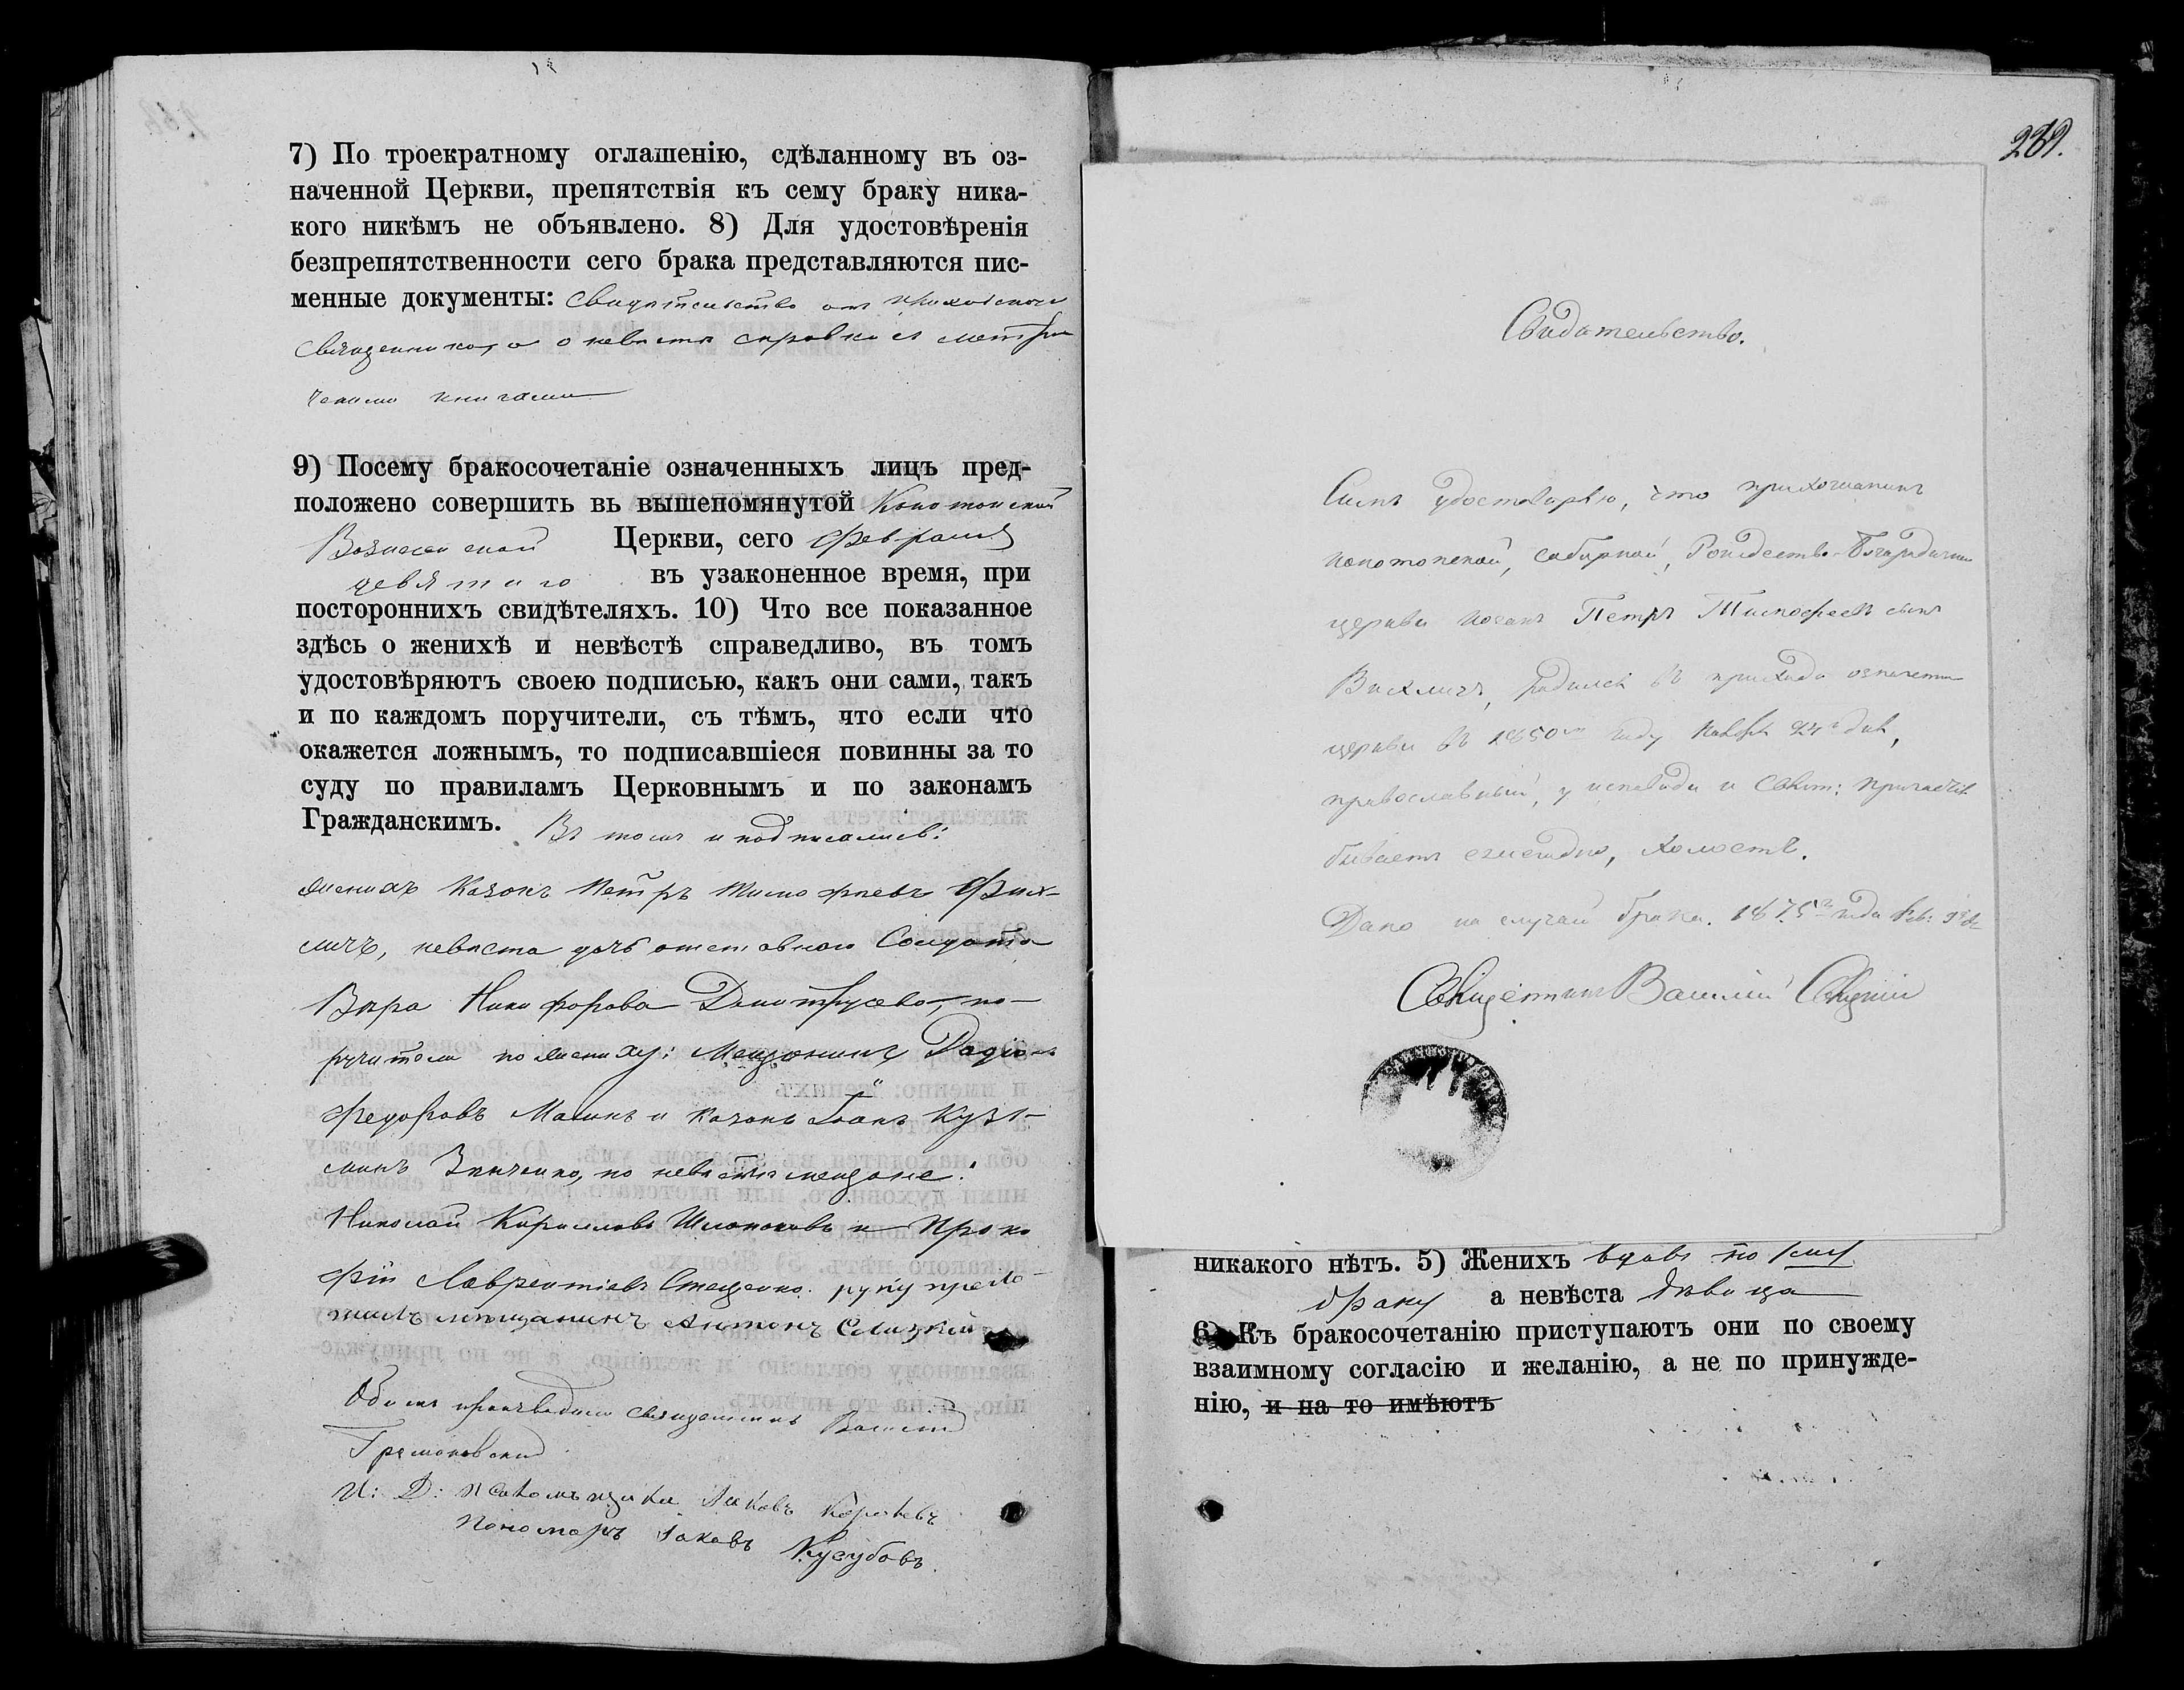 7) По троекратному оглашенію, сдѣланному въ оз-
наченной Церкви, препятствія къ сему браку ника-
кого никѣмъ не объявлено. 8) Для удостовѣренія
безпрепятственности сего брака представляются пис-
менные документы: Свидѣтельство отъ приходскаго
священника, а о невѣстѣ справка съ метри
ческими книгами
9) Посему бракосочетаніе означенныхъ лицъ пред-
положено совершить вь вышепомянутой Конотопской
Вознесенской Церкви, сего Февраля
девятаго въ узаконенное время, при
постороннихъ свидѣтеляхъ. 10) Что все показанное
здѣсь о женихѣ и невѣстѣ справедливо, въ томъ
удостовѣряютъ своею подписью, какъ они сами, такъ
и по каждомъ поручители, съ тѣмъ, что если что
окажется ложнымъ, то подписавшіеся повинны за то
суду по правиламъ Церковнымъ и по законамъ
Гражданскимъ. Въ томъ и подписались:
женихъ Козакъ Петръ Тимофѣевъ
невѣста дочь отставного Солдата
Вѣра Никифорова Дмитрусева, по-
ручители по женихѣ: Мещанинъ Родіонъ
Федоровъ и козакъ Іоанъ Кузь-
минъ Зѣнченко, по невѣстѣ мещане:
Николай Кириловъ и Проко
фій Лаврентіевъ Стеценко. руку прило-
жилъ мѣщанинъ Антонъ
Обыскъ производили священникъ Василій
И: Д: псаломщика Іаковъ
Пономарь Іаковъ Кусубовъ.
Свидѣтельство.
Симъ удостовѣряю, что прихожанинъ
конотопской, соборной, Рождество-Богородичной
церкви козакъ Петръ Тимофеевъ сынъ
родился въ приходѣ означенной
церкви въ 1850мъ году Ноябр 24 дня,
православный, у исповѣди и Свят: Причастія
бываетъ ежегодно, холостъ.
Дано на случай брака. 1875 года Фев: 9 д.
Священникъ Василій
никакого нѣтъ. 5) Женихъ вдовъ по 1му
браку а невѣста дѣвица
6) Къ бракосочетанію приступаютъ они по своему
взаимному согласію и желанію, а не по принужде-
нію, и на то имѣютъ